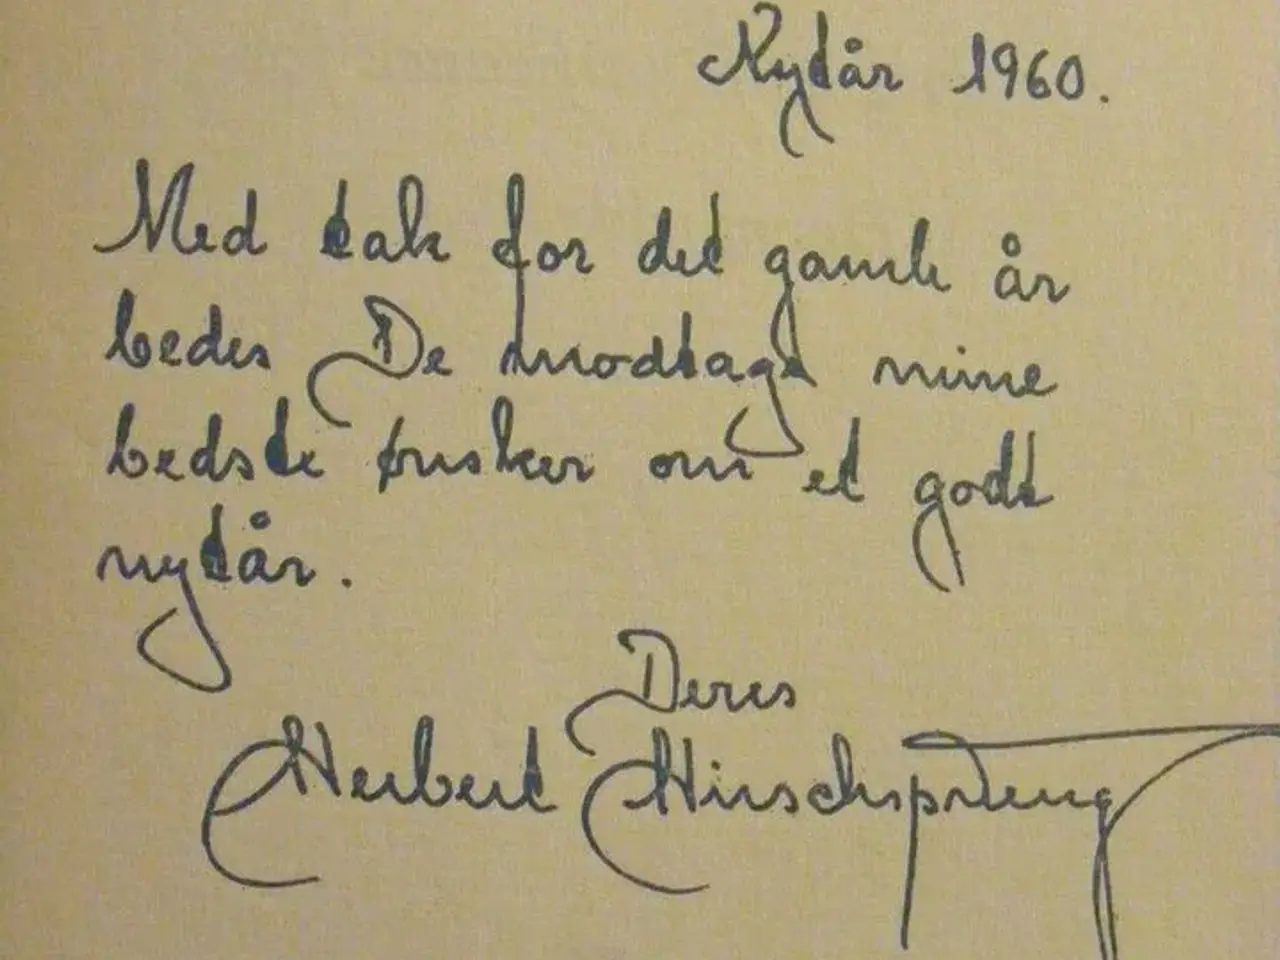 Nytår 1960.
Med tak for det gamle år
bedes De modtage mine
bedste ønsker om et godt
nytår.
Deres
Herbert Hirschsprung